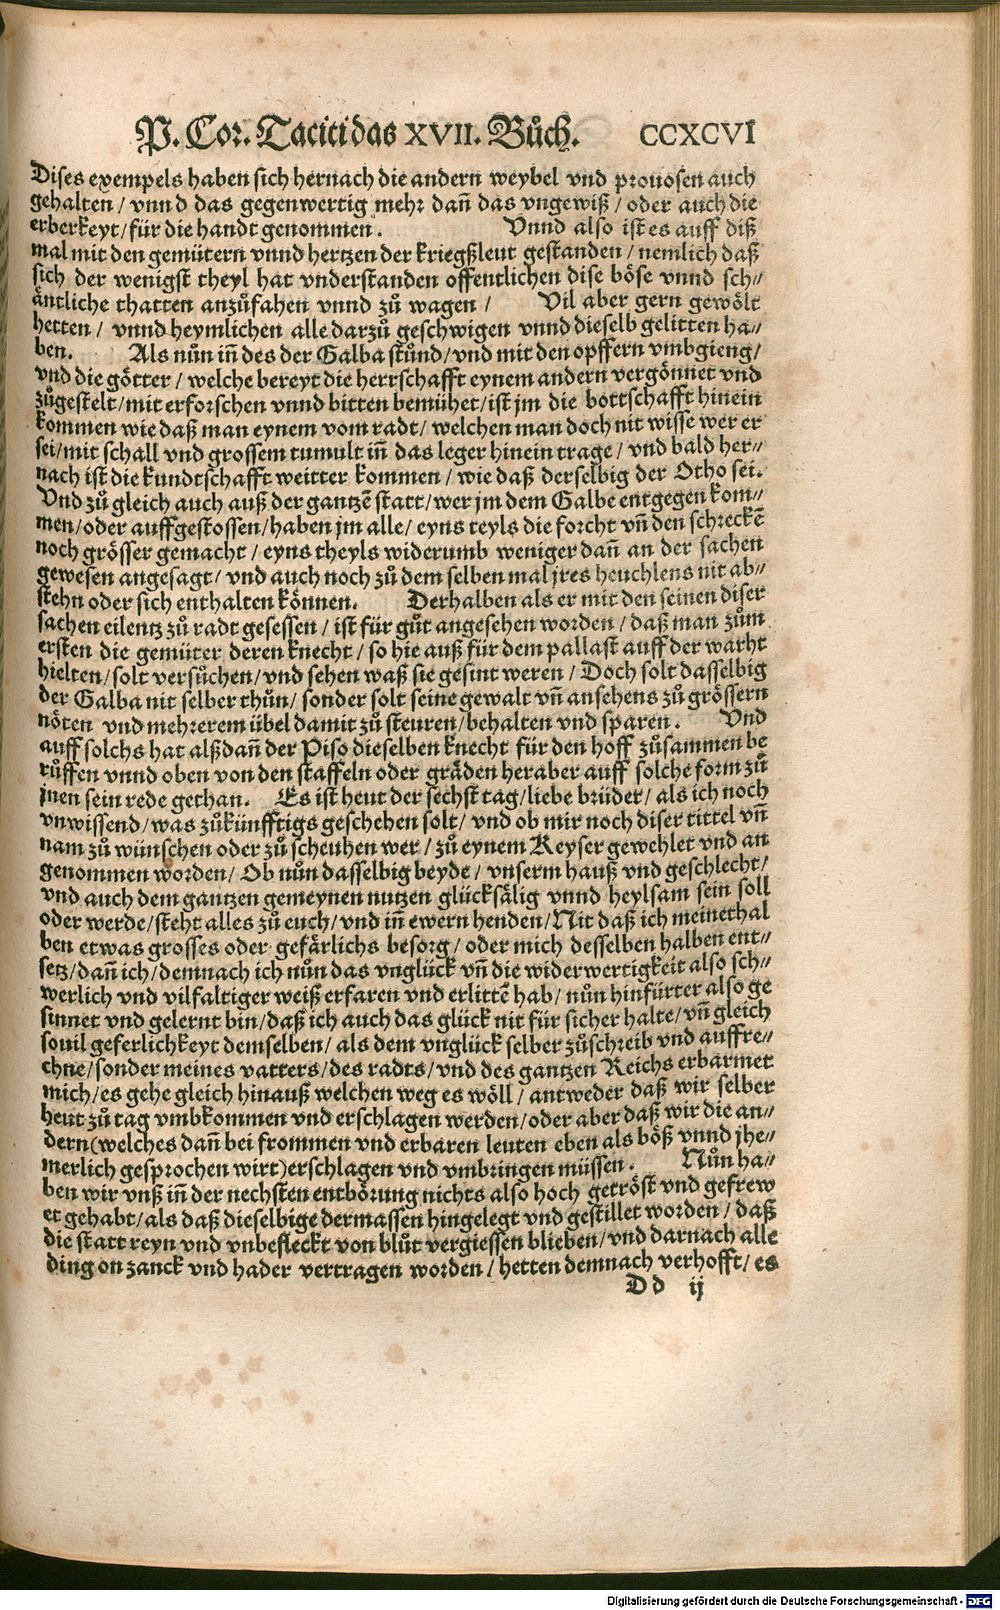 P. Cor. Taciti das XVII. Bůch. CCXCVI
Dises exempels haben sich hernach die andern weybel vnd prouosen auch
gehalten / vnnd das gegenwertig mehr dañ das vngewiß / oder auch die
erberkeyt / für die handt genommen. Vnnd also ist es auff diß
mal mit den gemütern vnnd hertzen der kriegßleut gestanden / nemlich daß
sich der wenigst theyl hat vnderstanden offentlichen dise böse vnnd sch⸗
äntliche thatten anzůfahen vnnd zů wagen / Vil aber gern gewölt
hetten / vnnd heymlichen alle darzů geschwigen vnnd dieselb gelitten ha⸗
ben. Als nůn iñ des der Galba stůnd / vnd mit den opffern vmbgieng /
vnd die götter / welche bereyt die herrschafft eynem andern vergönnet vnd
zůgestelt / mit erforschen vnnd bitten bemühet / ist jm die bottschafft hinein
kommen wie daß man eynem vom radt / welchen man doch nit wisse wer er
sei / mit schall vnd grossem tumult iñ das leger hinein trage / vnd bald her⸗
nach ist die kundtschafft weitter kommen / wie daß derselbig der Otho sei.
Vnd zů gleich auch auß der gantzẽ statt / wer jm dem Galbe entgegen kom⸗
men / oder auffgestossen / haben jm alle / eyns teyls die forcht vñ den schreckẽ
noch grösser gemacht / eyns theyls widerumb weniger dañ an der sachen
gewesen angesagt / vnd auch noch zů dem selben mal jres heuchlens nit ab⸗
stehn oder sich enthalten können. Derhalben als er mit den seinen diser
sachen eilentz zů radt gesessen / ist für gůt angesehen worden / daß man zům
ersten die gemüter deren knecht / so hie auß für dem pallast auff der warht
hielten / solt versůchen / vnd sehen waß sie gesint weren / Doch solt dasselbig
der Galba nit selber thůn / sonder solt seine gewalt vñ ansehens zů grössern
nöten vnd mehrerem übel damit zů steuren / behalten vnd sparen. Vnd
auff solchs hat alßdañ der Piso dieselben knecht für den hoff zůsammen be
růffen vnnd oben von den staffeln oder gräden heraber auff solche form zů
jnen sein rede gethan. Es ist heut der sechst tag / liebe brüder / als ich noch
vnwissend / was zůkünfftigs geschehen solt / vnd ob mir noch diser tittel vñ
nam zů wünschen oder zů scheuhen wer / zů eynem Keyser gewehlet vnd an
genommen worden / Ob nůn dasselbig beyde / vnserm hauß vnd geschlecht /
vnd auch dem gantzen gemeynen nutzen glücksälig vnnd heylsam sein soll
oder werde / steht alles zů euch / vnd iñ ewern henden / Nit daß ich meinethal
ben etwas grosses oder gefärlichs besorg / oder mich desselben halben ent⸗
setz / dañ ich / demnach ich nůn das vnglück vñ die widerwertigkeit also sch⸗
werlich vnd vilfaltiger weiß erfaren vnd erlittẽ hab / nůn hinfürter also ge
sinnet vnd gelernt bin / daß ich auch das glück nit für sicher halte / vñ gleich
souil geferlichkeyt demselben / als dem vnglück selber zůschreib vnd auffre⸗
chne / sonder meines vatters / des radts / vnd des gantzen Reichs erbarmet
mich / es gehe gleich hinauß welchen weg es wöll / antweder daß wir selber
heut zů tag vmbkommen vnd erschlagen werden / oder aber daß wir die an⸗
dern (welches dañ bei frommen vnd erbaren leuten eben als böß vnnd jhe⸗
merlich gesprochen wirt) erschlagen vnd vmbringen müssen. Nůn ha⸗
ben wir vnß iñ der nechsten entbörung nichts also hoch getröst vnd gefrew
et gehabt / als daß dieselbige dermassen hingelegt vnd gestillet worden / daß
die statt reyn vnd vnbefleckt von blůt vergiessen blieben / vnd darnach alle
ding on zanck vnd hader vertragen worden / hetten demnach verhofft / es
Dd ij
Digitalisierung gefördert durch die Deutsche Forschungsgemeinschaft - DFG